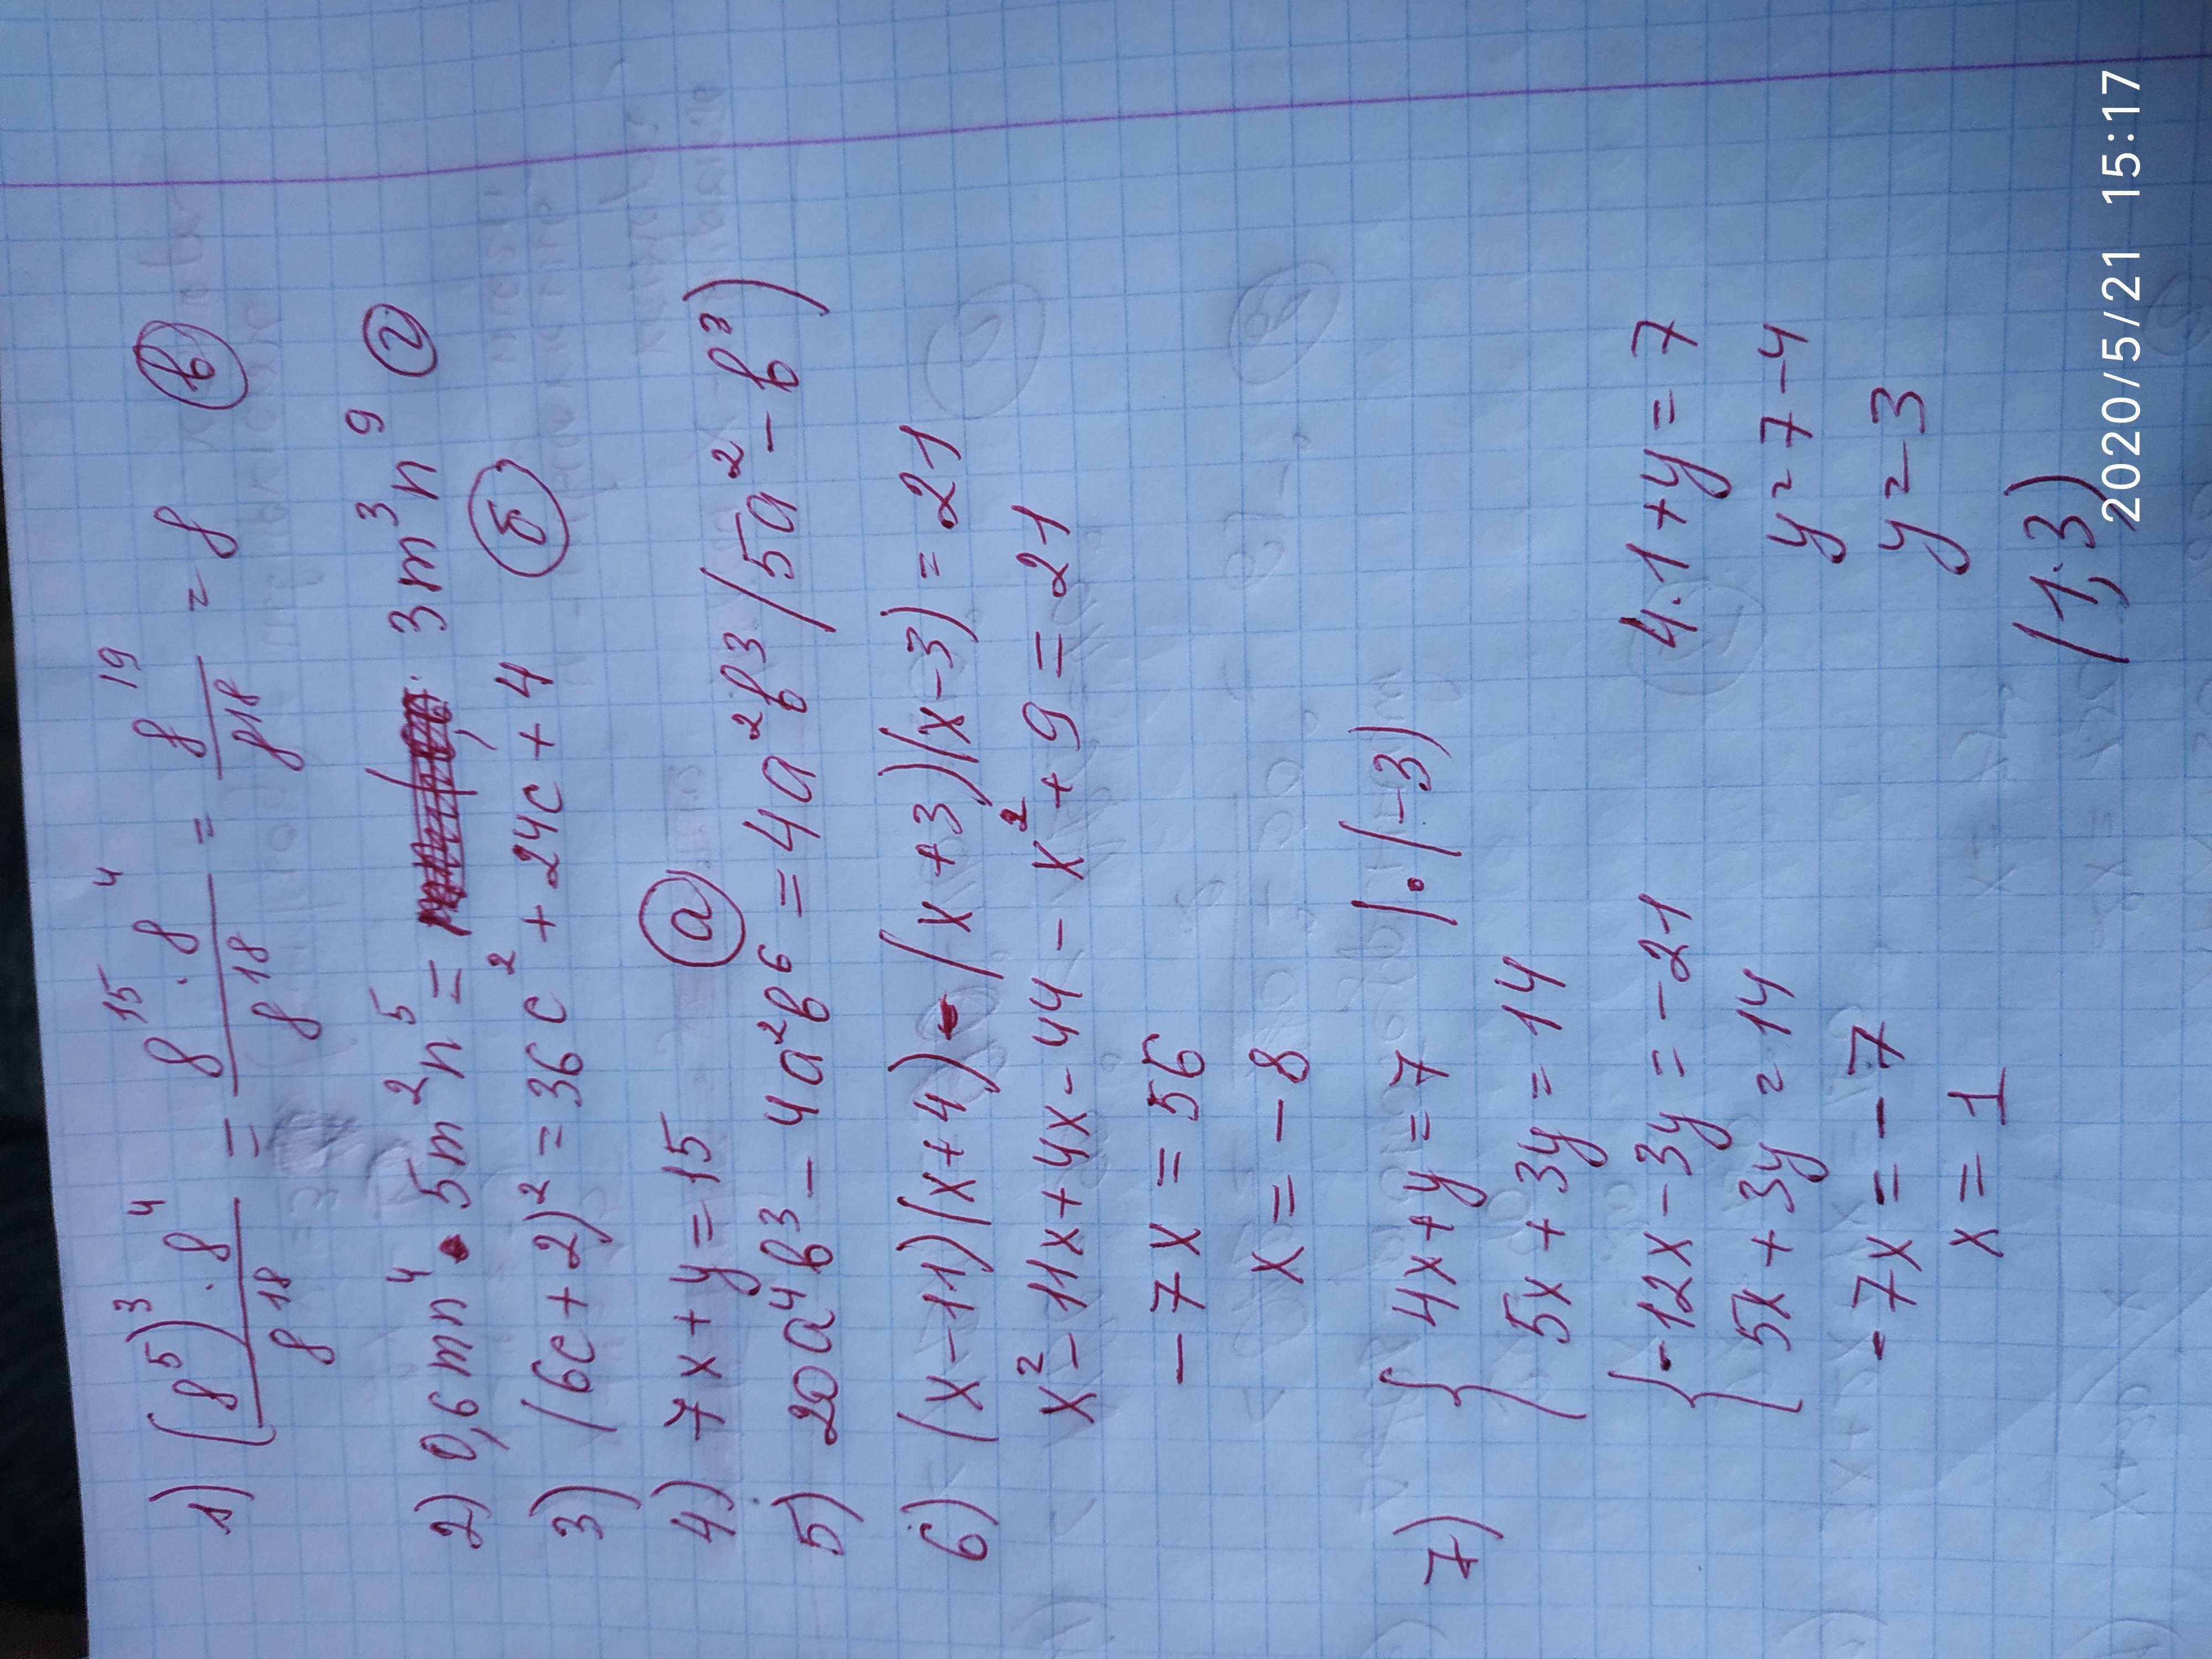 1) (8⁵)³·8⁴/8¹⁸ = 8¹⁵·8⁴/8¹⁸ = 8¹⁹/8¹⁸ = 8 (в)
2) 0,6mn⁴ · 5m²n⁵ = 3m³n⁹ (г)
3) (6c+2)² = 36c² + 24c + 4 (б)
4) 7x+y=15 (а)
5) 20a⁴b³ – 4a²b⁶ = 4a²b³(5a² – b³)
6) (x–11)(x+4) – (x+3)(x–3) = 21
x² – 11x + 4x – 44 – x² + 9 = 21
–7x = 56
x = –8
7) { 4x+y = 7 |·(–3)
5x+3y = 14
{ –12x–3y = –21
5x+3y = 14
–7x = –7
x = 1
4·1+y=7
y=7–4
y=3
(1;3)
2020/5/21 15:17